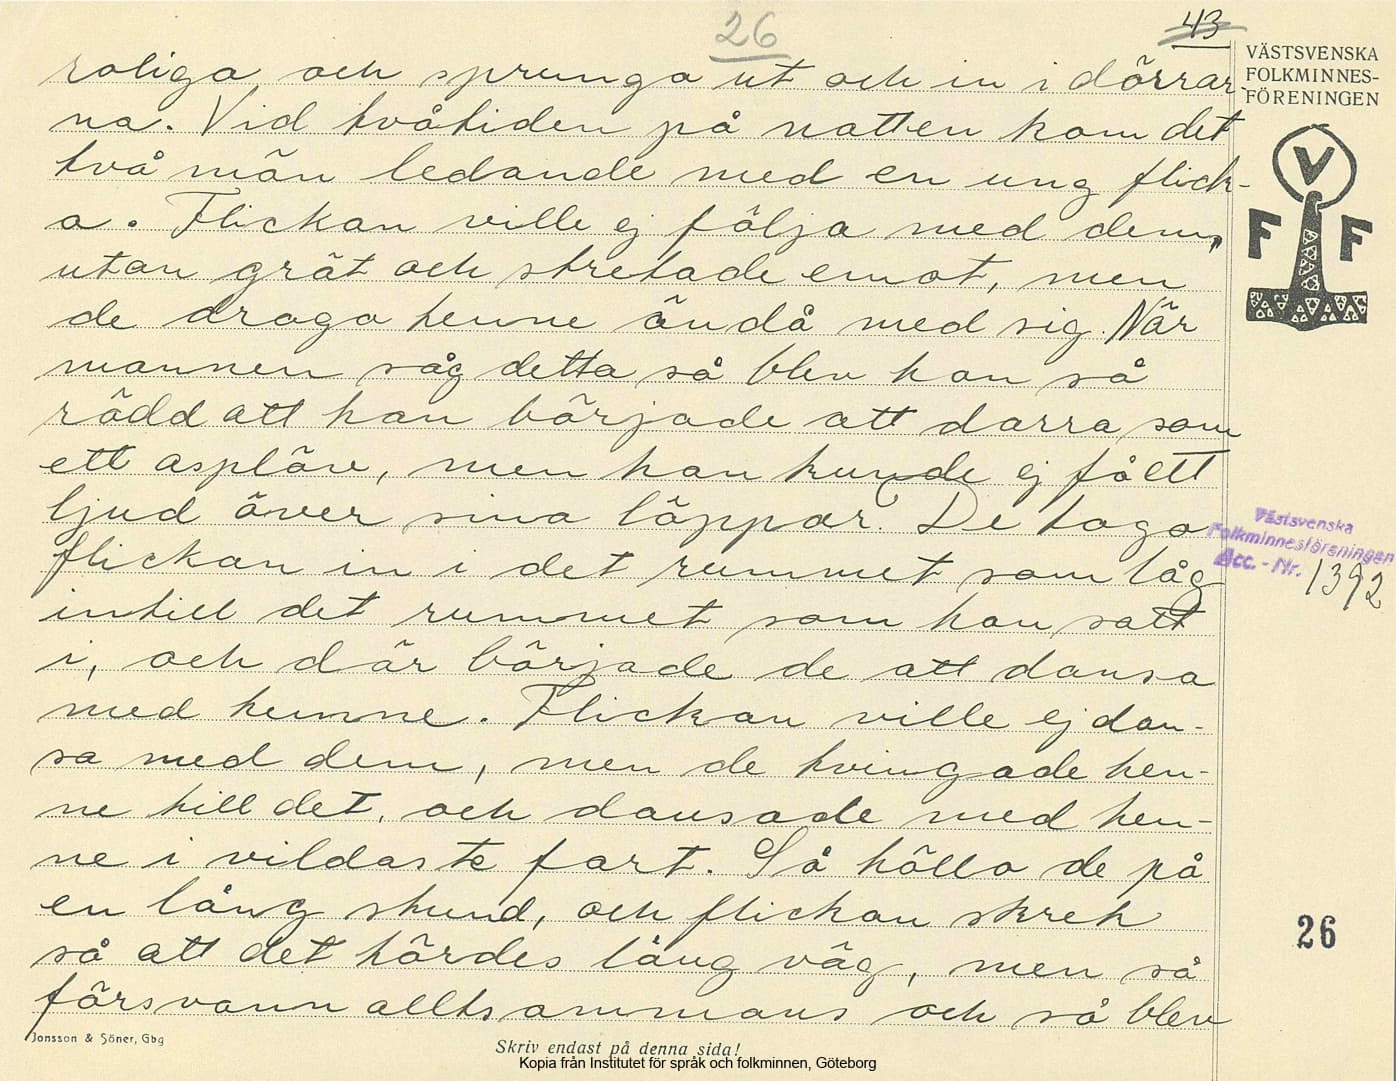 26
43
VÄSTSVENSKA
FOLKMINNES-
FÖRENINGEN
V
F F
roliga och sprunga ut och in i dörrar-
na. Vid tvåtiden på natten kom det
två män ledande med en ung flick-
a. Flickan ville ej följa med dem,
utan grät och stretade emot, men
de drogo henne ändå med sig. När
mannen såg detta så blev han så
rädd att han började att darra som
ett asplöv, men han kunde ej få ett
ljud över sina läppar. De togo
flickan in i det rummet som låg
intill det rummet som han satt
i, och där började de att dansa
med henne. Flickan ville ej dan-
sa med dem, men de tvingade hen-
ne till det, och dansade med hen-
ne i vildaste fart. Så höllo de på
en lång stund, och flickan skrek
så att det hördes lång väg, men så
försvann alltsammans och så blev
Västsvenska
Folkminnesföreningen
Acc. - Nr. 1392
26
Jonsson & Söner, Gbg
Skriv endast på denna sida!
Kopia från Institutet för språk och folkminnen, Göteborg